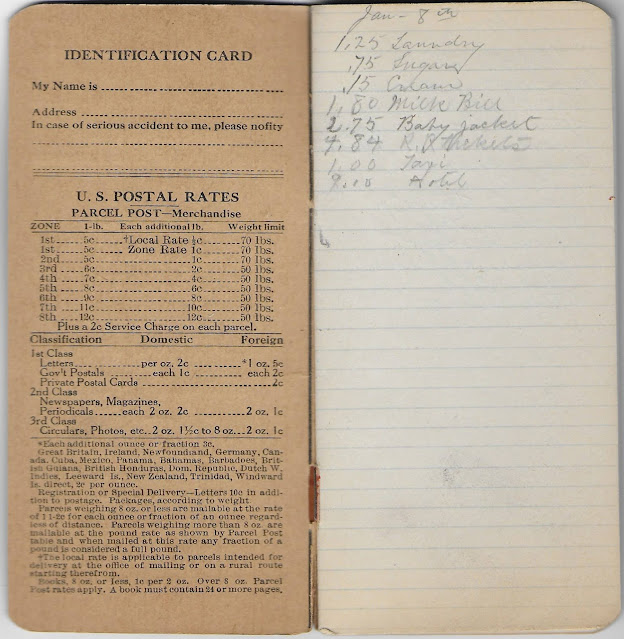 IDENTIFICATION CARD
My Name is
Address
In case of serious accident to me, please notify
U. S. POSTAL RATES
PARCEL POST—Merchandise
ZONE 1-lb. Each additional lb. Weight limit
1st 5c †Local Rate ½c 70 lbs.
1st 5c Zone Rate 1c 70 lbs.
2nd 5c 1c 70 lbs.
3rd 6c 2c 50 lbs.
4th 7c 4c 50 lbs.
5th 8c 6c 50 lbs.
6th 9c 8c 50 lbs.
7th 11c 10c 50 lbs.
8th 12c 12c 50 lbs.
Plus a 2c Service Charge on each parcel.
Classification Domestic Foreign
1st Class
Letters per oz. 2c *1 oz. 5c
Gov't Postals each 1c each 2c
Private Postal Cards 2c
2nd Class
Newspapers, Magazines,
Periodicals each 2 oz. 2c 2 oz. 1c
3rd Class
Circulars, Photos, etc. 2 oz. 1½c to 8 oz. 2 oz. 1c
*Each additional ounce or fraction 3c.
Great Britain, Ireland, Newfoundland, Germany, Can-
ada, Cuba, Mexico, Panama, Bahamas, Barbadoes, Brit-
ish Guiana, British Honduras, Dom. Republic, Dutch W.
Indies, Leeward Is., New Zealand, Trinidad, Windward
Is. direct, 2c per ounce.
Registration or Special Delivery—Letters 10c in addi-
tion to postage. Packages, according to weight
Parcels weighing 8 oz. or less are mailable at the rate
of 1 1-2c for each ounce or fraction of an ounce regard-
less of distance. Parcels weighing more than 8 oz. are
mailable at the pound rate as shown by Parcel Post
table and when mailed at this rate any fraction of a
pound is considered a full pound.
†The local rate is applicable to parcels intended for
delivery at the office of mailing or on a rural route
starting therefrom.
Books, 8 oz. or less, 1c per 2 oz. Over 8 oz. Parcel
Post rates apply. A book must contain 24 or more pages.
Jan - 8th
1.25 Laundry
.75 Sugar
.15 Cream
1.80 Milk Bill
2.75 Baby jacket
4.84 R.R. tickets
1.00 Taxi
8.00 Hotel